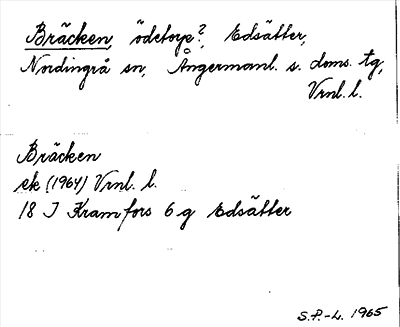 Bräcken, ödetorp?, Edsätter,
Nordingrå sn, Ångermanl. s. doms. tg,
Vrnl. l.
Bräcken
ek (1964) Vrnl. l.
18 I Kramfors 6 g Edsätter
S.P.-L. 1965